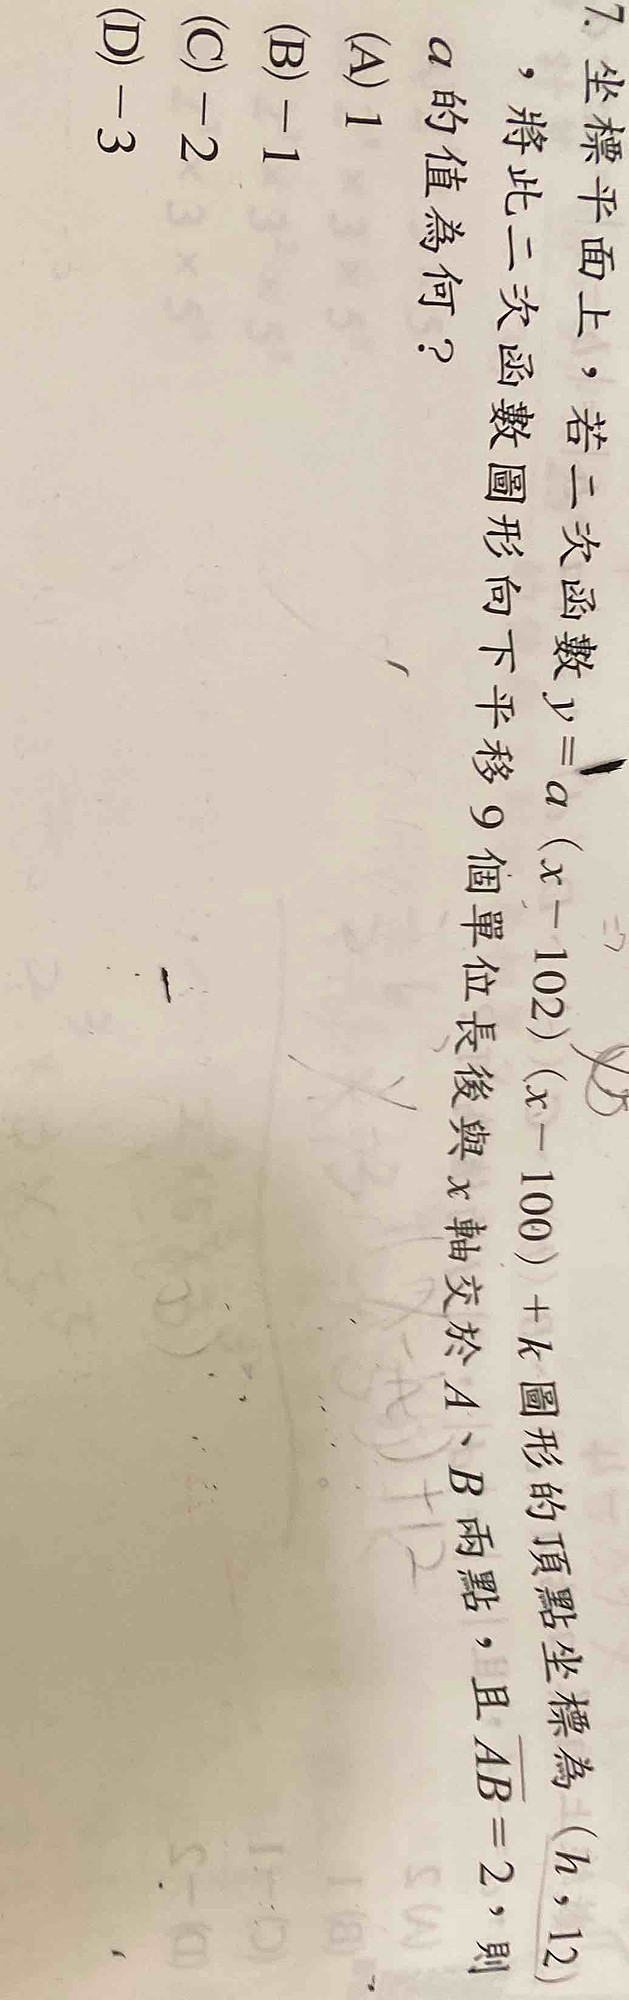 7. 坐標平面上，若二次函數 y = a (x − 102) (x − 100) + k 圖形的頂點坐標為 (h , 12)
，將此二次函數圖形向下平移 9 個單位長後與 x 軸交於 A、B 兩點，且 AB = 2，則
a 的值為何？
(A) 1
(B) −1
(C) −2
(D) −3